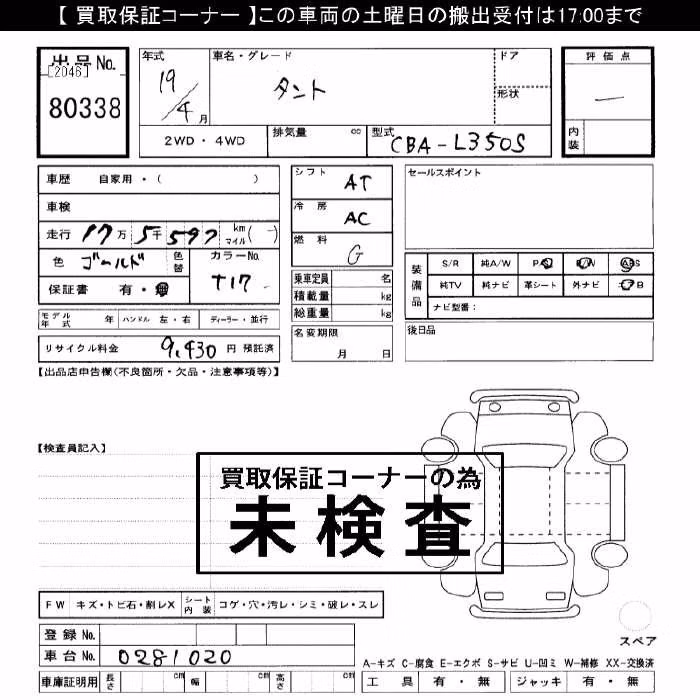 【 買取保証コーナー 】この車両の土曜日の搬出受付は17:00まで
出品No.
[2046]
80338
年式
19/4月
車名・グレード
タント
ドア
形状
2WD・4WD
排気量 cc
型式 CBA-L350S
評価点
—
内装
車歴 自家用・( )
車検
走行 17万5千597 km マイル(-)
色 ゴールド 色替
カラーNo. T17
保証書 有・無
モデル年式 年 ハンドル 左・右 ディーラー・並行
リサイクル料金 9,430 円 預託済
シフト AT
冷房 AC
燃料 G
乗車定員 名
積載量 kg
総重量 kg
名変期限
月 日
セールスポイント
装備品
S/R 純A/W P/S P/W ABS
純TV 純ナビ 革シート 外ナビ エアB
ナビ型番:
後日品
【出品店申告欄(不良箇所・欠品・注意事項等)】
【検査員記入】
買取保証コーナーの為
未検査
FW キズ・トビ石・割レX シート内装 コゲ・穴・汚レ・シミ・破レ・スレ
登録No.
車台No. 0281020
車庫証明用 長さ cm 幅 cm 高さ cm
スペア
A-キズ C-腐食 E-エクボ S-サビ U-凹ミ W-補修 XX-交換済
工具 有・無 ジャッキ 有・無